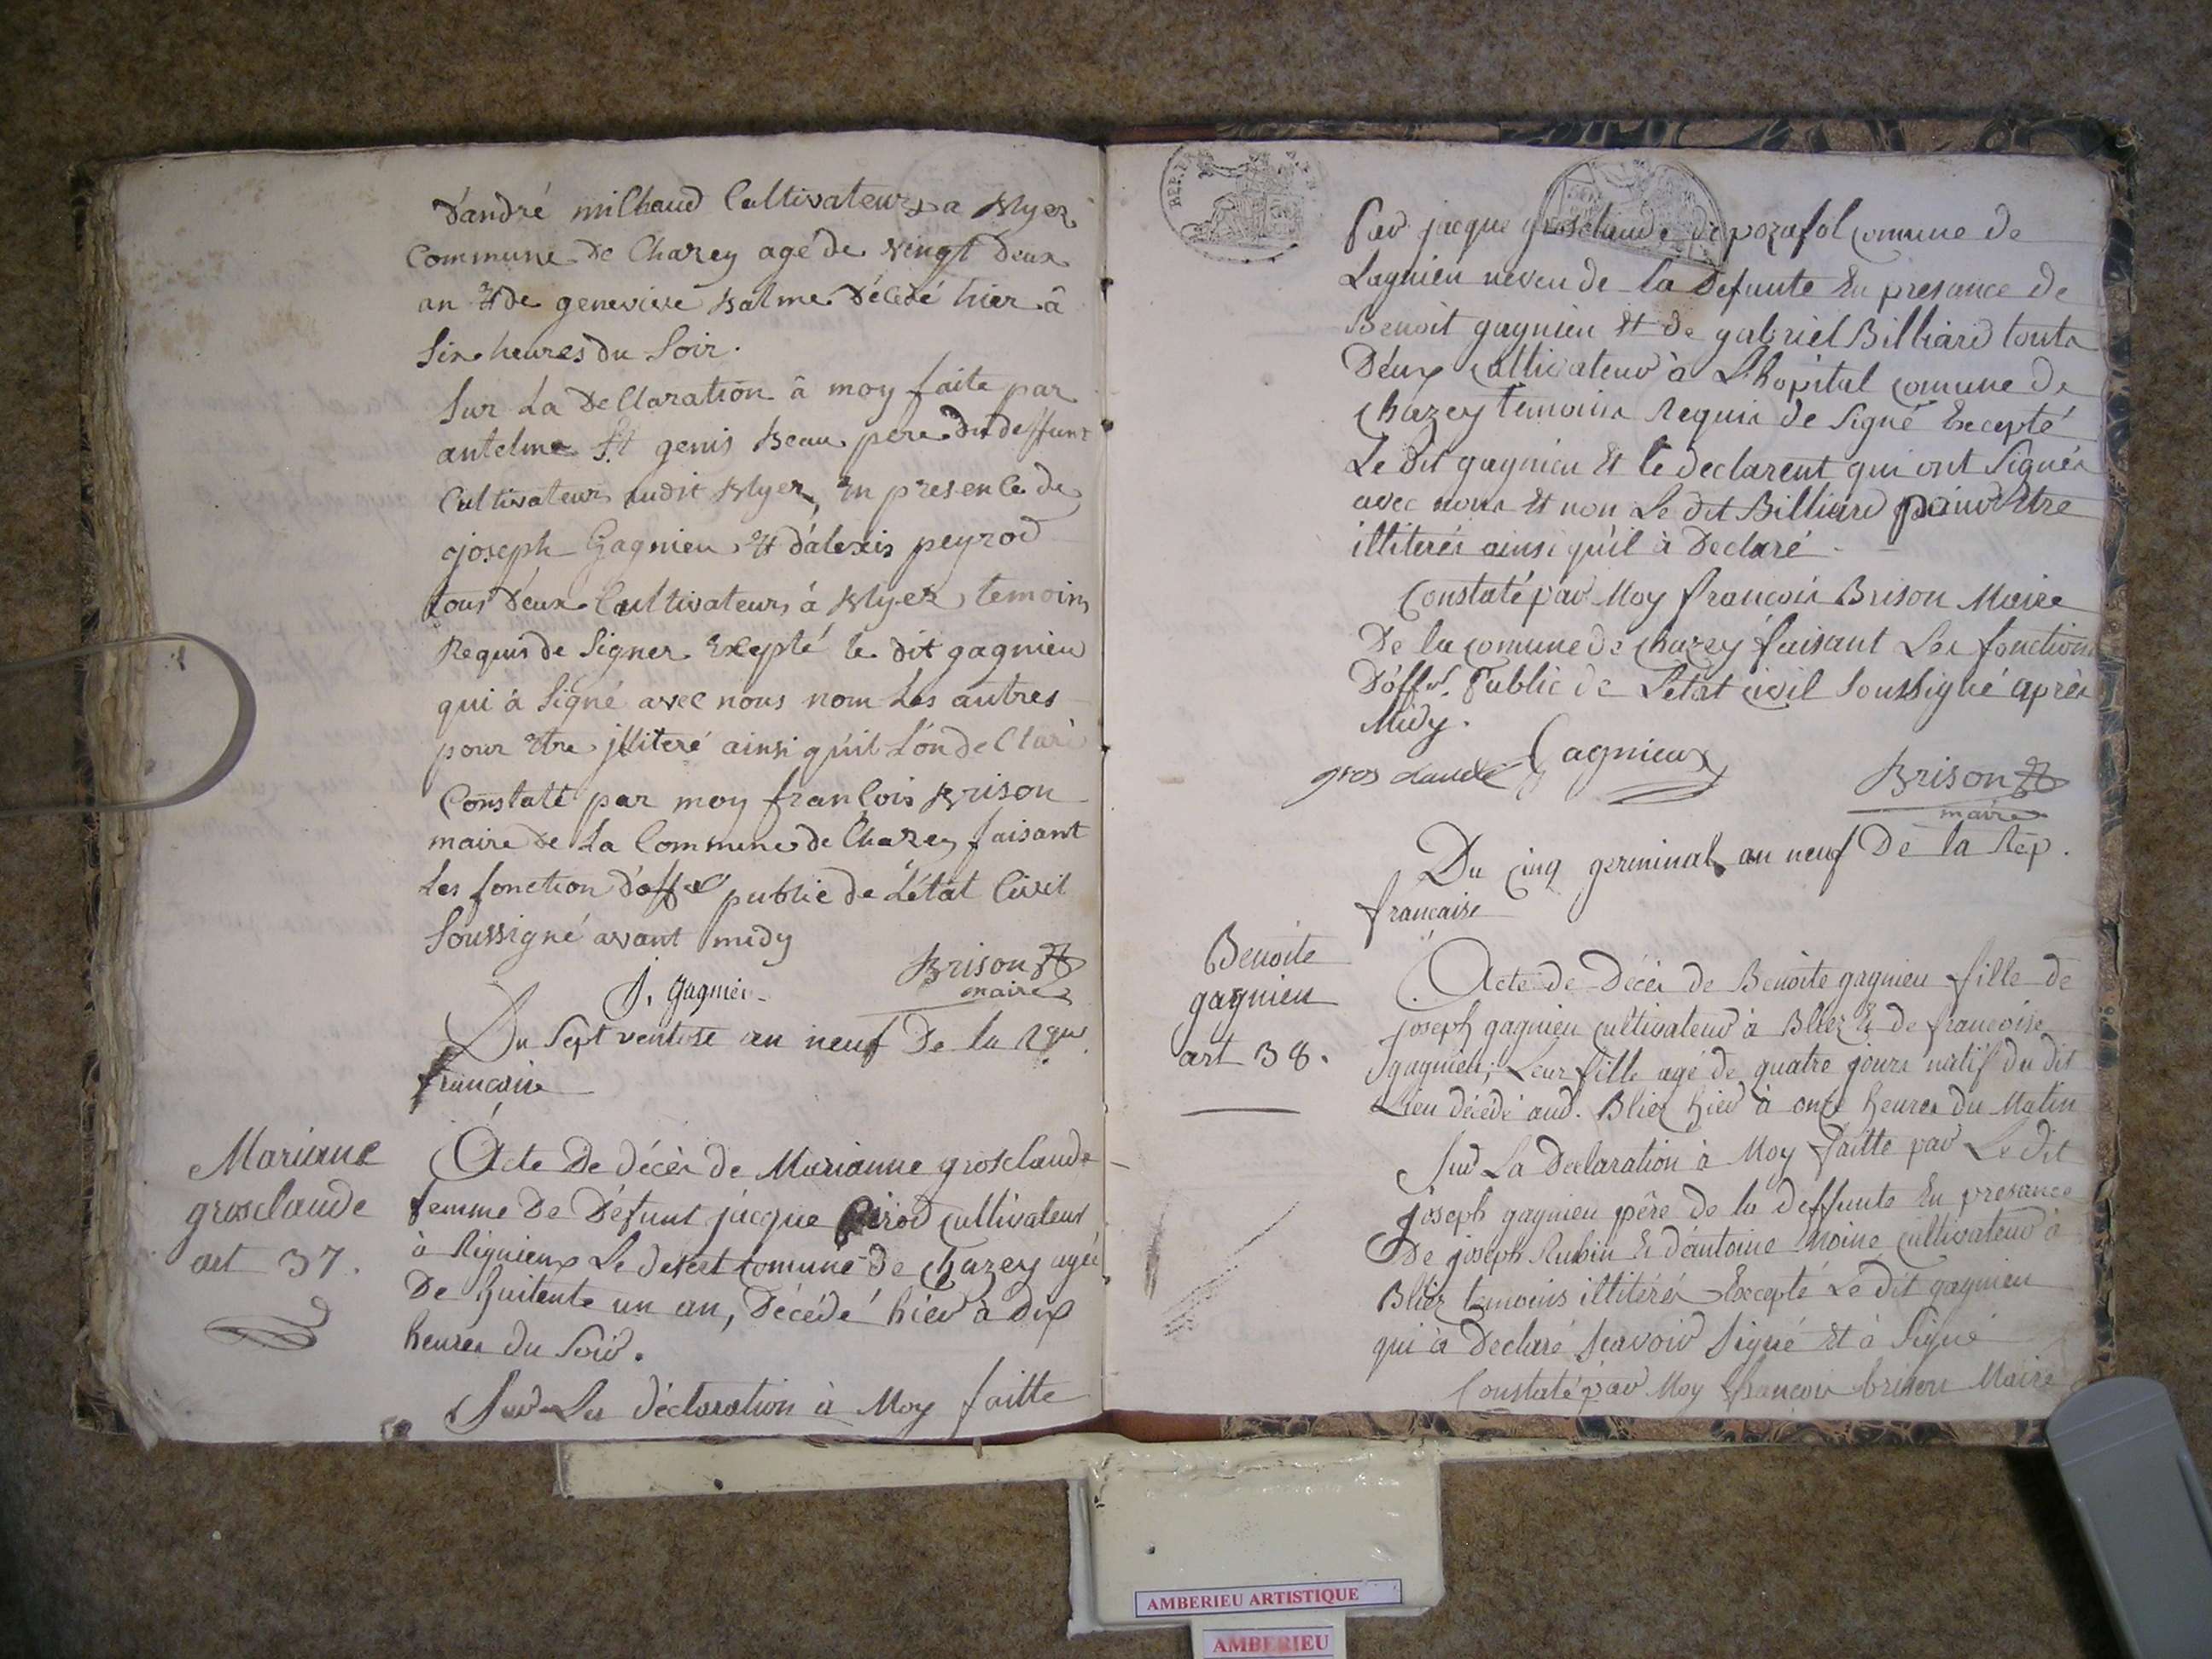 D'andré milhaud Cultivateur a Blyes
Commune de Chazey agé de vingt deux
an Et de genevieve balme décédé hier à
Six heures du Soir.
Sur La Declaration à moy faite par
antelme St genis Beau pere du deffunt
Cultivateur audit Blyes, En presence de
joseph Gagnieu Et d'alexis peyrod
tous deux Cultivateurs à Blyes temoins
Requis de Signer Excepté le dit gagnieu
qui à Signé avec nous nom Les autres
pour Etre illiteré ainsi qu'il L'on declaré
Constaté par moy françois Brison
maire de La Commune de Chazey faisant
Les fonction d'off.er public de L'état Civil
Soussigné avant midy
J. Gagnieu Brison
maire
Du Sept ventose an neuf De la Rque
francaise
Marianne
grosclaude
art 37.
Acte De décès de Marianne grosclaude
femme De Défunt jacque Girod cultivateur
à Rignieux Le desert Comune De Chazey agée
De huitente un an, Décédé hier à Dix
heures du Soir.
Sur La déclaration à Moy faitte
Par jacque grosclaude de comune de
Lagnieu neveu de la Defunte En presance de
Benoit gagnieu Et de gabriel Billiard touts
Deux cultivateur à L'hopital comune de
Chazey temoins Requis de Signé Excepté
Le dit gagnieu Et le declarent qui ont Signés
avec nous Et non Le dit Billiard pour Etre
illiterés ainsi qu'il à Declaré.
Constaté par Moy francois Brison Maire
De la comune de Chazey faisant Les fonctions
D'offer. Public de L'etat civil Soussigné après
Midy.
gros claude Gagnieux Brison
maire
Du Cinq germinal an neuf De la Rép.
francaise
Benoite
gagnieu
art 38.
Acte de Décès de Benoite gagnieu fille de
joseph gagnieu cultivateur à Bliez Et de francoise
gagnieu; Leur fille agé de quatre jours natif du dit
Lieu décédé aud. Bliez hier à onze heures du Matin
Sur La Declaration à Moy faitte par Le dit
joseph gagnieu père de la deffunte En presance
De joseph Rubin Et d'antoine Moine cultivateur à
Bliez temoins illitérés Excepté Le dit gagnieu
qui à Declaré Scavoir Signé Et à Signé
Constaté par Moy francois brison Maire
AMBERIEU ARTISTIQUE
AMBERIEU